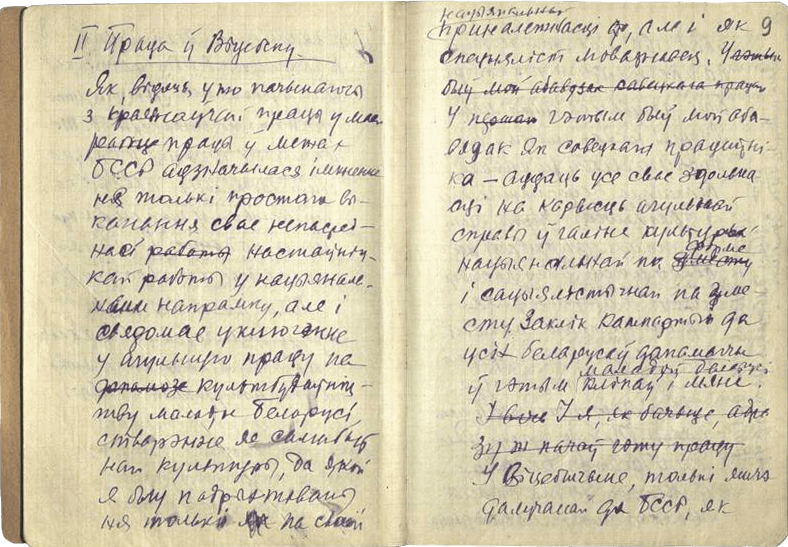 II Праца ў Віцебску
Як відаць ужо пачынаючы
з краязнаўчай працы у маей
рабоце праца ў межах
БССР адзначылася імкненнем
ня толькі простага вы-
канання свае непасрэд-
насі работы настаўніц-
кай работы у нацыяналь-
ным напрамку, але і
свядомае уключэнне
у агульную працу па
дапамозе культбудаўніц-
тву маладой Беларусі,
стварэнне яе самабыт
най культуры, да якой
я быў падрыхтованы
ня толькі па сваёй
9
нацыянальнай
прыналежнасці, але і як
спецыяліст мовазнавец. У гэтым
быў мой абавязак савецкага працаў
У гэтым быў мой аба-
вязак як савецкага працаўні-
ка — аддаць усе свае здольна
сці на карысць агульнай
справы ў галіне культуры
форме
нацыянальнай па зместу
і сацыялістычнай па зме
сту Заклік Кампартыі да
усіх беларусаў дапамагчы
маладой бацькаў
ў гэтым клікаў і мяне.
І я, як бачыце, адра
зу ж пачаў гэту працу
У Віцебшчыне, толькі яшчэ
далучанай да БССР, як